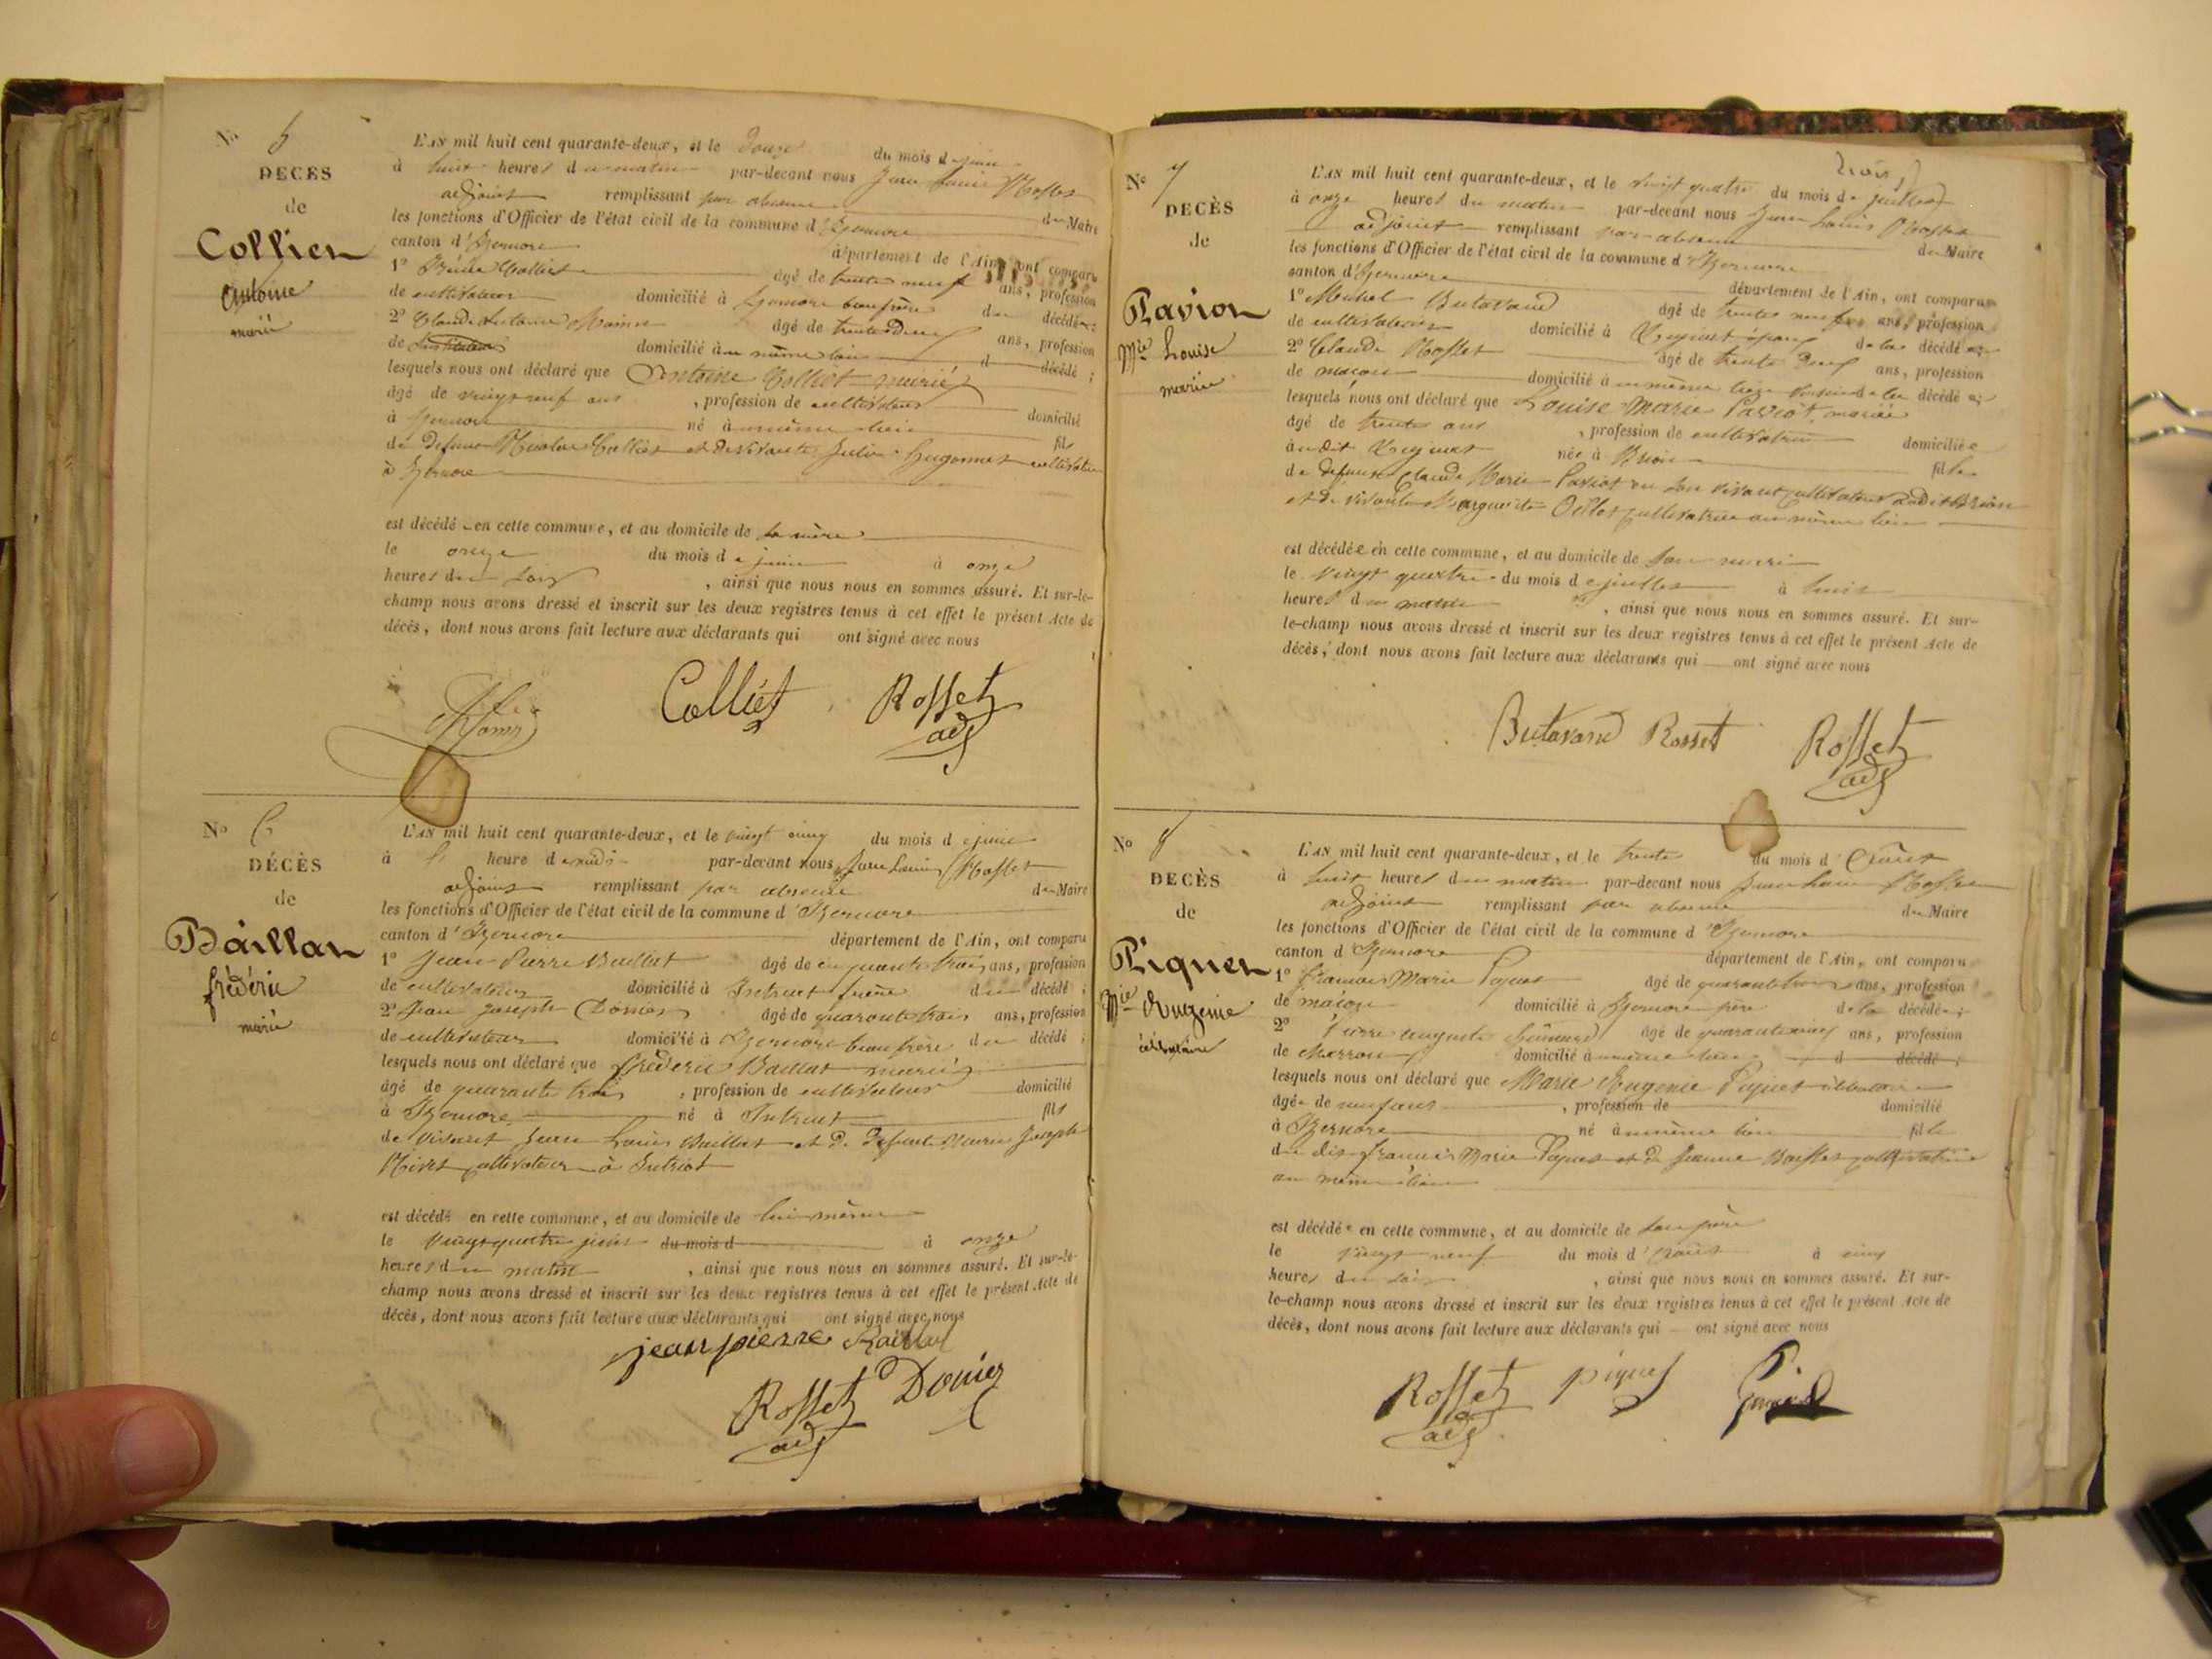 No 5
DECES
de
Collier
Antoine
marié
L'AN mil huit cent quarante-deux, et le douze du mois de juin
à huit heures du matin par-devant nous Jean Louis Rosset
adjoint remplissant par absence du Maire
les fonctions d'Officier de l'état civil de la commune d'Izernore
canton d'Izernore département de l'Ain, ont comparu
1o Colliet âgé de trente neuf ans, profession
de cultivateur domicilié à Izernore beau frère du décédé;
2o Claude Antoine âgé de trente deux ans, profession
de domicilié au même lieu d décédé;
lesquels nous ont déclaré que Antoine Colliet marié
âgé de vingt neuf ans, profession de cultivateur domicilié
à Izernore né à même lieu fils
de défunt Nicolas Colliet et de vivante Julie Hugonnet cultivatrice
à Izernore
est décédé en cette commune, et au domicile de sa mère
le onze du mois de juin à onze
heures du soir, ainsi que nous nous en sommes assuré. Et sur-le-
champ nous avons dressé et inscrit sur les deux registres tenus à cet effet le présent Acte de
décès, dont nous avons fait lecture aux déclarants qui ont signé avec nous
Colliet Rosset
adj
No 6
DÉCÈS
de
Baillat
frédéric
marié
L'AN mil huit cent quarante-deux, et le vingt cinq du mois de juin
à heure de midi par-devant nous Jean Louis Rosset
adjoint remplissant par absence du Maire
les fonctions d'Officier de l'état civil de la commune d'Izernore
canton d'Izernore département de l'Ain, ont comparu
1o Jean Pierre Baillat âgé de cinquante trois ans, profession
de cultivateur domicilié à Intriat frère du décédé;
2o Jean Joseph Donier âgé de quarante trois ans, profession
de cultivateur domicilié à Izernore beau frère du décédé;
lesquels nous ont déclaré que frédéric Baillat marié
âgé de quarante trois, profession de cultivateur domicilié
à Izernore né à Intriat fils
de vivant Jean Louis Baillat et de défunte Marie Joseph
cultivateur à Intriat
est décédé en cette commune, et au domicile de lui même
le vingt quatre juin du mois d à onze
heures du matin, ainsi que nous nous en sommes assuré. Et sur-le-
champ nous avons dressé et inscrit sur les deux registres tenus à cet effet le présent Acte de
décès, dont nous avons fait lecture aux déclarants qui ont signé avec nous
jean pierre Baillat
Rosset Donier
adj
No 7
DECÈS
de
Pavion
Mie Louise
mariée
L'AN mil huit cent quarante-deux, et le vingt quatre du mois de juillet
à onze heures du matin par-devant nous Jean Louis Rosset
adjoint remplissant par absence du Maire
les fonctions d'Officier de l'état civil de la commune d'Izernore
canton d'Izernore département de l'Ain, ont comparu
1o Michel Butavand âgé de trente neuf ans, profession
de cultivateur domicilié à Ceyssiat époux de la décédée;
2o Claude Rosset âgé de trente deux ans, profession
de maçon domicilié à même lieu voisin de la décédée;
lesquels nous ont déclaré que Louise Marie Paviot mariée
âgé de trente ans, profession de cultivatrice domiciliée
née à Brion fille
de défunt Claude Marie Paviot en son vivant cultivateur audit Brion
et de vivante Marguerite cultivatrice au même lieu
est décédée en cette commune, et au domicile de son mari
le vingt quatre du mois de juillet à huit
heures du matin, ainsi que nous nous en sommes assuré. Et sur-
le-champ nous avons dressé et inscrit sur les deux registres tenus à cet effet le présent Acte de
décès, dont nous avons fait lecture aux déclarants qui ont signé avec nous
Butavand Rosset Rosset
adj
No 8
DECÈS
de
Piquet
Mie Eugénie
célibataire
L'AN mil huit cent quarante-deux, et le trente du mois d'Août
à huit heures du matin par-devant nous Jean Louis Rosset
adjoint remplissant par absence du Maire
les fonctions d'Officier de l'état civil de la commune d'Izernore
canton d'Izernore département de l'Ain, ont comparu
1o François Marie Piquet âgé de quarante trois ans, profession
de maçon domicilié à Izernore père de la décédée;
2o Pierre Auguste âgé de quarante cinq ans, profession
de charron domicilié à même lieu d décédé;
lesquels nous ont déclaré que Marie Eugénie Piquet célibataire
âgée de neuf ans, profession de domicilié
à Izernore né à même lieu fille
du dit François Marie Piquet et de Jeanne cultivatrice
au même lieu
est décédée en cette commune, et au domicile de son père
le vingt neuf du mois d'août à cinq
heures du soir, ainsi que nous nous en sommes assuré. Et sur-
le-champ nous avons dressé et inscrit sur les deux registres tenus à cet effet le présent Acte de
décès, dont nous avons fait lecture aux déclarants qui ont signé avec nous
Rosset piquet
adj